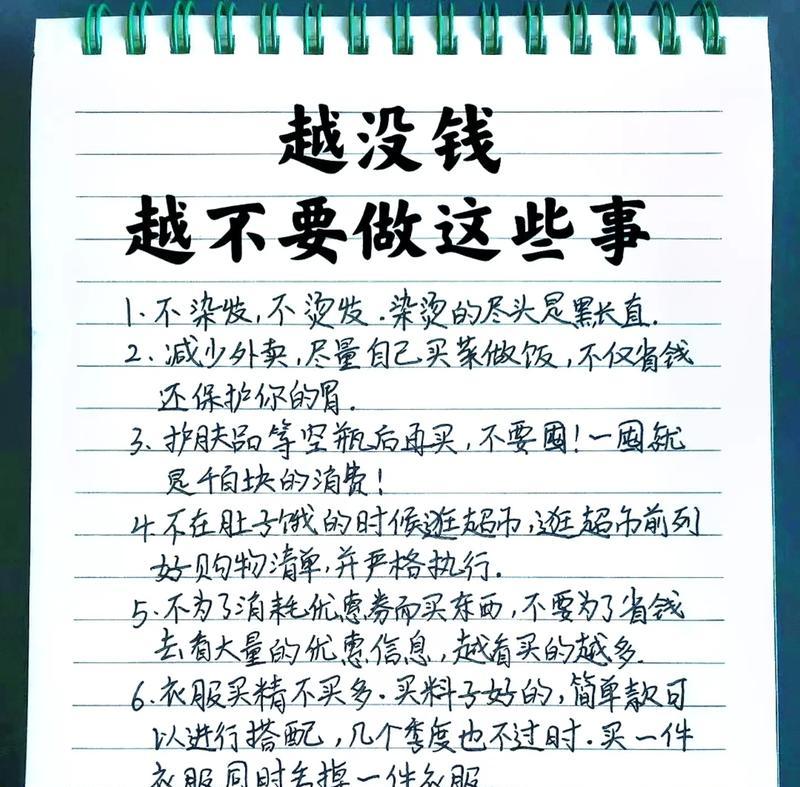 越没钱
越不要做这些事
1.不染发,不烫发.染烫的尽头是黑长直.
2.减少外卖,尽量自己买菜做饭,不仅省钱
还保护你的胃.
3.护肤品等空瓶后再买,不要囤!一囤就
是千百块的消费!
4.不在肚子饿的时候逛超市,逛超市前列
好购物清单,并严格执行.
5.不为了消耗优惠券而买东西,不要为了省钱
去看大量的优惠信息,越看买的越多.
6.衣服买精不买多.买料子好的,简单款可
以进行搭配,几个季度也不过时.买一件
衣服同时丢掉一件衣服.